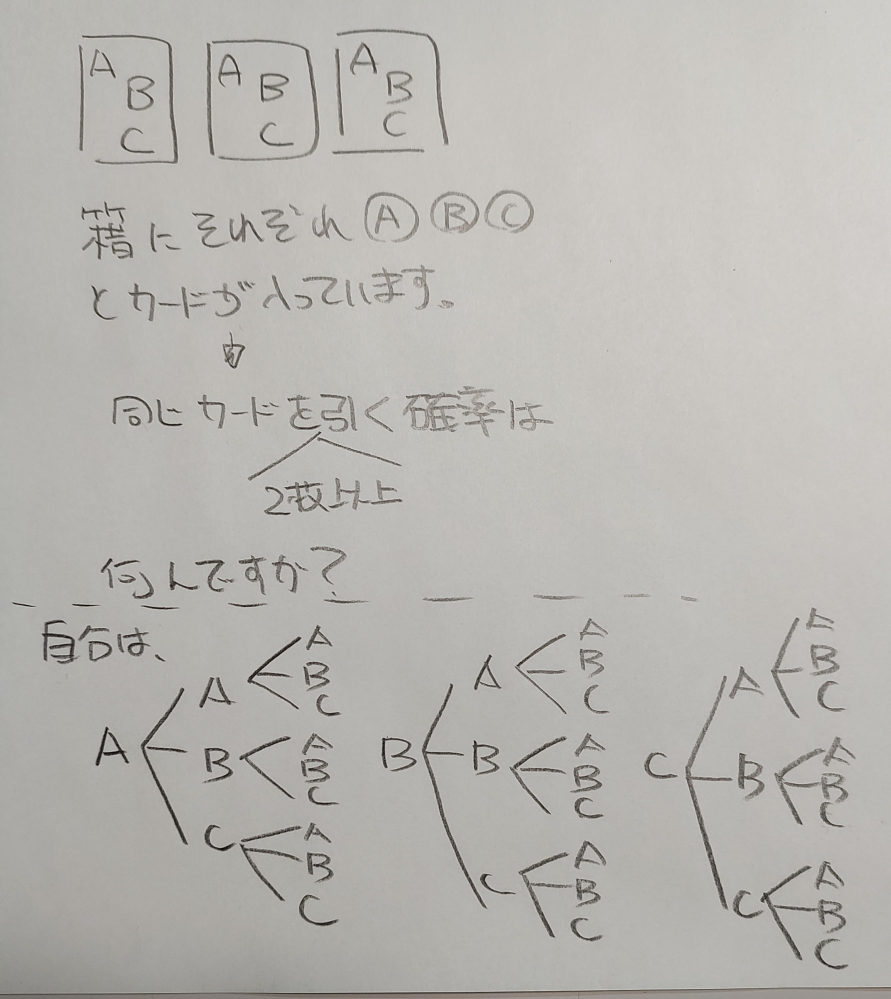 A B C
A B C
A B C
箱にそれぞれ Ⓐ Ⓑ Ⓒ
とカードが入っています。
同じカードを引く確率は
2枚以上
何んですか？
自分は、
A
A
A
B
C
B
A
B
C
C
A
B
C
B
A
A
B
C
B
A
B
C
C
A
B
C
C
A
A
B
C
B
A
B
C
C
A
B
C